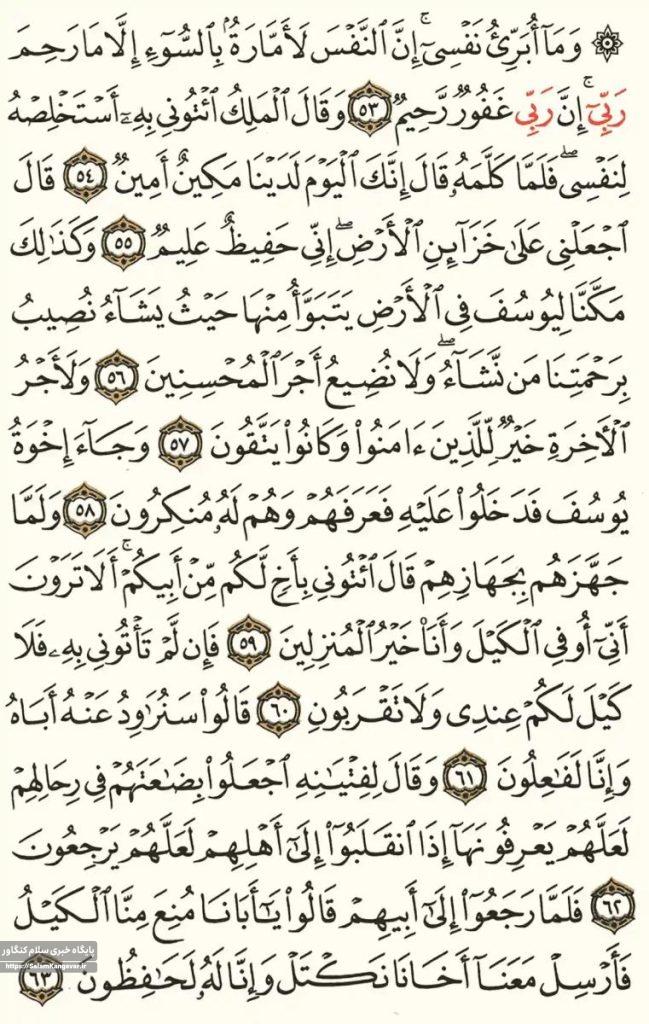 ۞ وَمَآ أُبَرِّئُ نَفْسِىٓ ۚ إِنَّ ٱلنَّفْسَ لَأَمَّارَةٌۢ بِٱلسُّوٓءِ إِلَّا مَا رَحِمَ
رَبِّىٓ ۚ إِنَّ رَبِّى غَفُورٌ رَّحِيمٌ ٥٣ وَقَالَ ٱلْمَلِكُ ٱئْتُونِى بِهِۦٓ أَسْتَخْلِصْهُ
لِنَفْسِى ۖ فَلَمَّا كَلَّمَهُۥ قَالَ إِنَّكَ ٱلْيَوْمَ لَدَيْنَا مَكِينٌ أَمِينٌ ٥٤ قَالَ
ٱجْعَلْنِى عَلَىٰ خَزَآئِنِ ٱلْأَرْضِ ۖ إِنِّى حَفِيظٌ عَلِيمٌ ٥٥ وَكَذَٰلِكَ
مَكَّنَّا لِيُوسُفَ فِى ٱلْأَرْضِ يَتَبَوَّأُ مِنْهَا حَيْثُ يَشَآءُ نُصِيبُ
بِرَحْمَتِنَا مَن نَّشَآءُ ۖ وَلَا نُضِيعُ أَجْرَ ٱلْمُحْسِنِينَ ٥٦ وَلَأَجْرُ
ٱلْـَٔاخِرَةِ خَيْرٌ لِّلَّذِينَ ءَامَنُوا۟ وَكَانُوا۟ يَتَّقُونَ ٥٧ وَجَآءَ إِخْوَةُ
يُوسُفَ فَدَخَلُوا۟ عَلَيْهِ فَعَرَفَهُمْ وَهُمْ لَهُۥ مُنكِرُونَ ٥٨ وَلَمَّا
جَهَّزَهُم بِجَهَازِهِمْ قَالَ ٱئْتُونِى بِأَخٍ لَّكُم مِّنْ أَبِيكُمْ ۚ أَلَا تَرَوْنَ
أَنِّىٓ أُوفِى ٱلْكَيْلَ وَأَنَا۠ خَيْرُ ٱلْمُنزِلِينَ ٥٩ فَإِن لَّمْ تَأْتُونِى بِهِۦ فَلَا
كَيْلَ لَكُمْ عِندِى وَلَا تَقْرَبُونِ ٦٠ قَالُوا۟ سَنُرَٰوِدُ عَنْهُ أَبَاهُ
وَإِنَّا لَفَـٰعِلُونَ ٦١ وَقَالَ لِفِتْيَـٰنِهِ ٱجْعَلُوا۟ بِضَـٰعَتَهُمْ فِى رِحَالِهِمْ
لَعَلَّهُمْ يَعْرِفُونَهَآ إِذَا ٱنقَلَبُوٓا۟ إِلَىٰٓ أَهْلِهِمْ لَعَلَّهُمْ يَرْجِعُونَ
٦٢ فَلَمَّا رَجَعُوٓا۟ إِلَىٰٓ أَبِيهِمْ قَالُوا۟ يَـٰٓأَبَانَا مُنِعَ مِنَّا ٱلْكَيْلُ
فَأَرْسِلْ مَعَنَآ أَخَانَا نَكْتَلْ وَإِنَّا لَهُۥ لَحَـٰفِظُونَ ٦٣
پایگاه خبری سلام کنگاور
https://SalamKangavar.ir